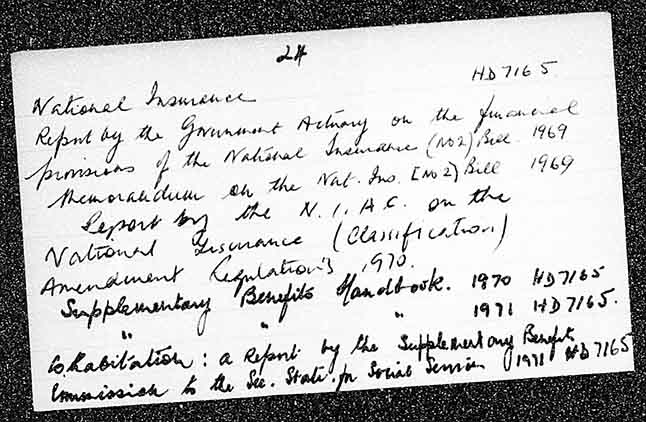 24
HD7165
National Insurance
Report by the Government Actuary on the financial
provisions of the National Insurance (No2) Bill. 1969
Memorandum on the Nat. Ins. [No2) Bill 1969
Report by the N.I.A.C. on the
National Insurance (Classification)
Amendment Regulations 1970.
Supplementary Benefits Handbook. 1970 HD7165
" " " 1971 HD7165.
Cohabitation: a report by the Supplementary Benefits
Commission to the Sec. State. for Social Services 1971 HD7165